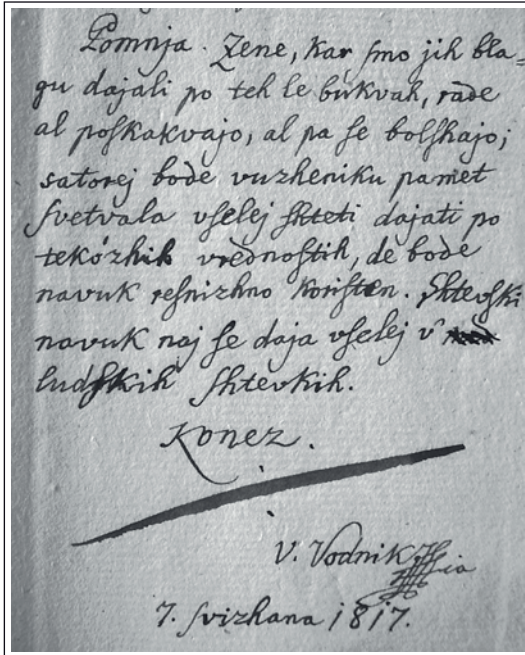 Pomnja. Zene, kar ſmo jih bla=
gu dajali po teh le bukvah, rade
al poſkakvajo, al pa ſe bolſhajo;
satorej bode vuzheniku pamet
ſvetvala vſelej ſhteti dajati po
tekózhih vrednoſtih, de bode
navuk reſnizhno koriſten. Shtevſki
navuk naj ſe daja vſelej v
ludſkih ſhtevkih.
Konez.
V. Vodnik
7. ſvizhana 1817.